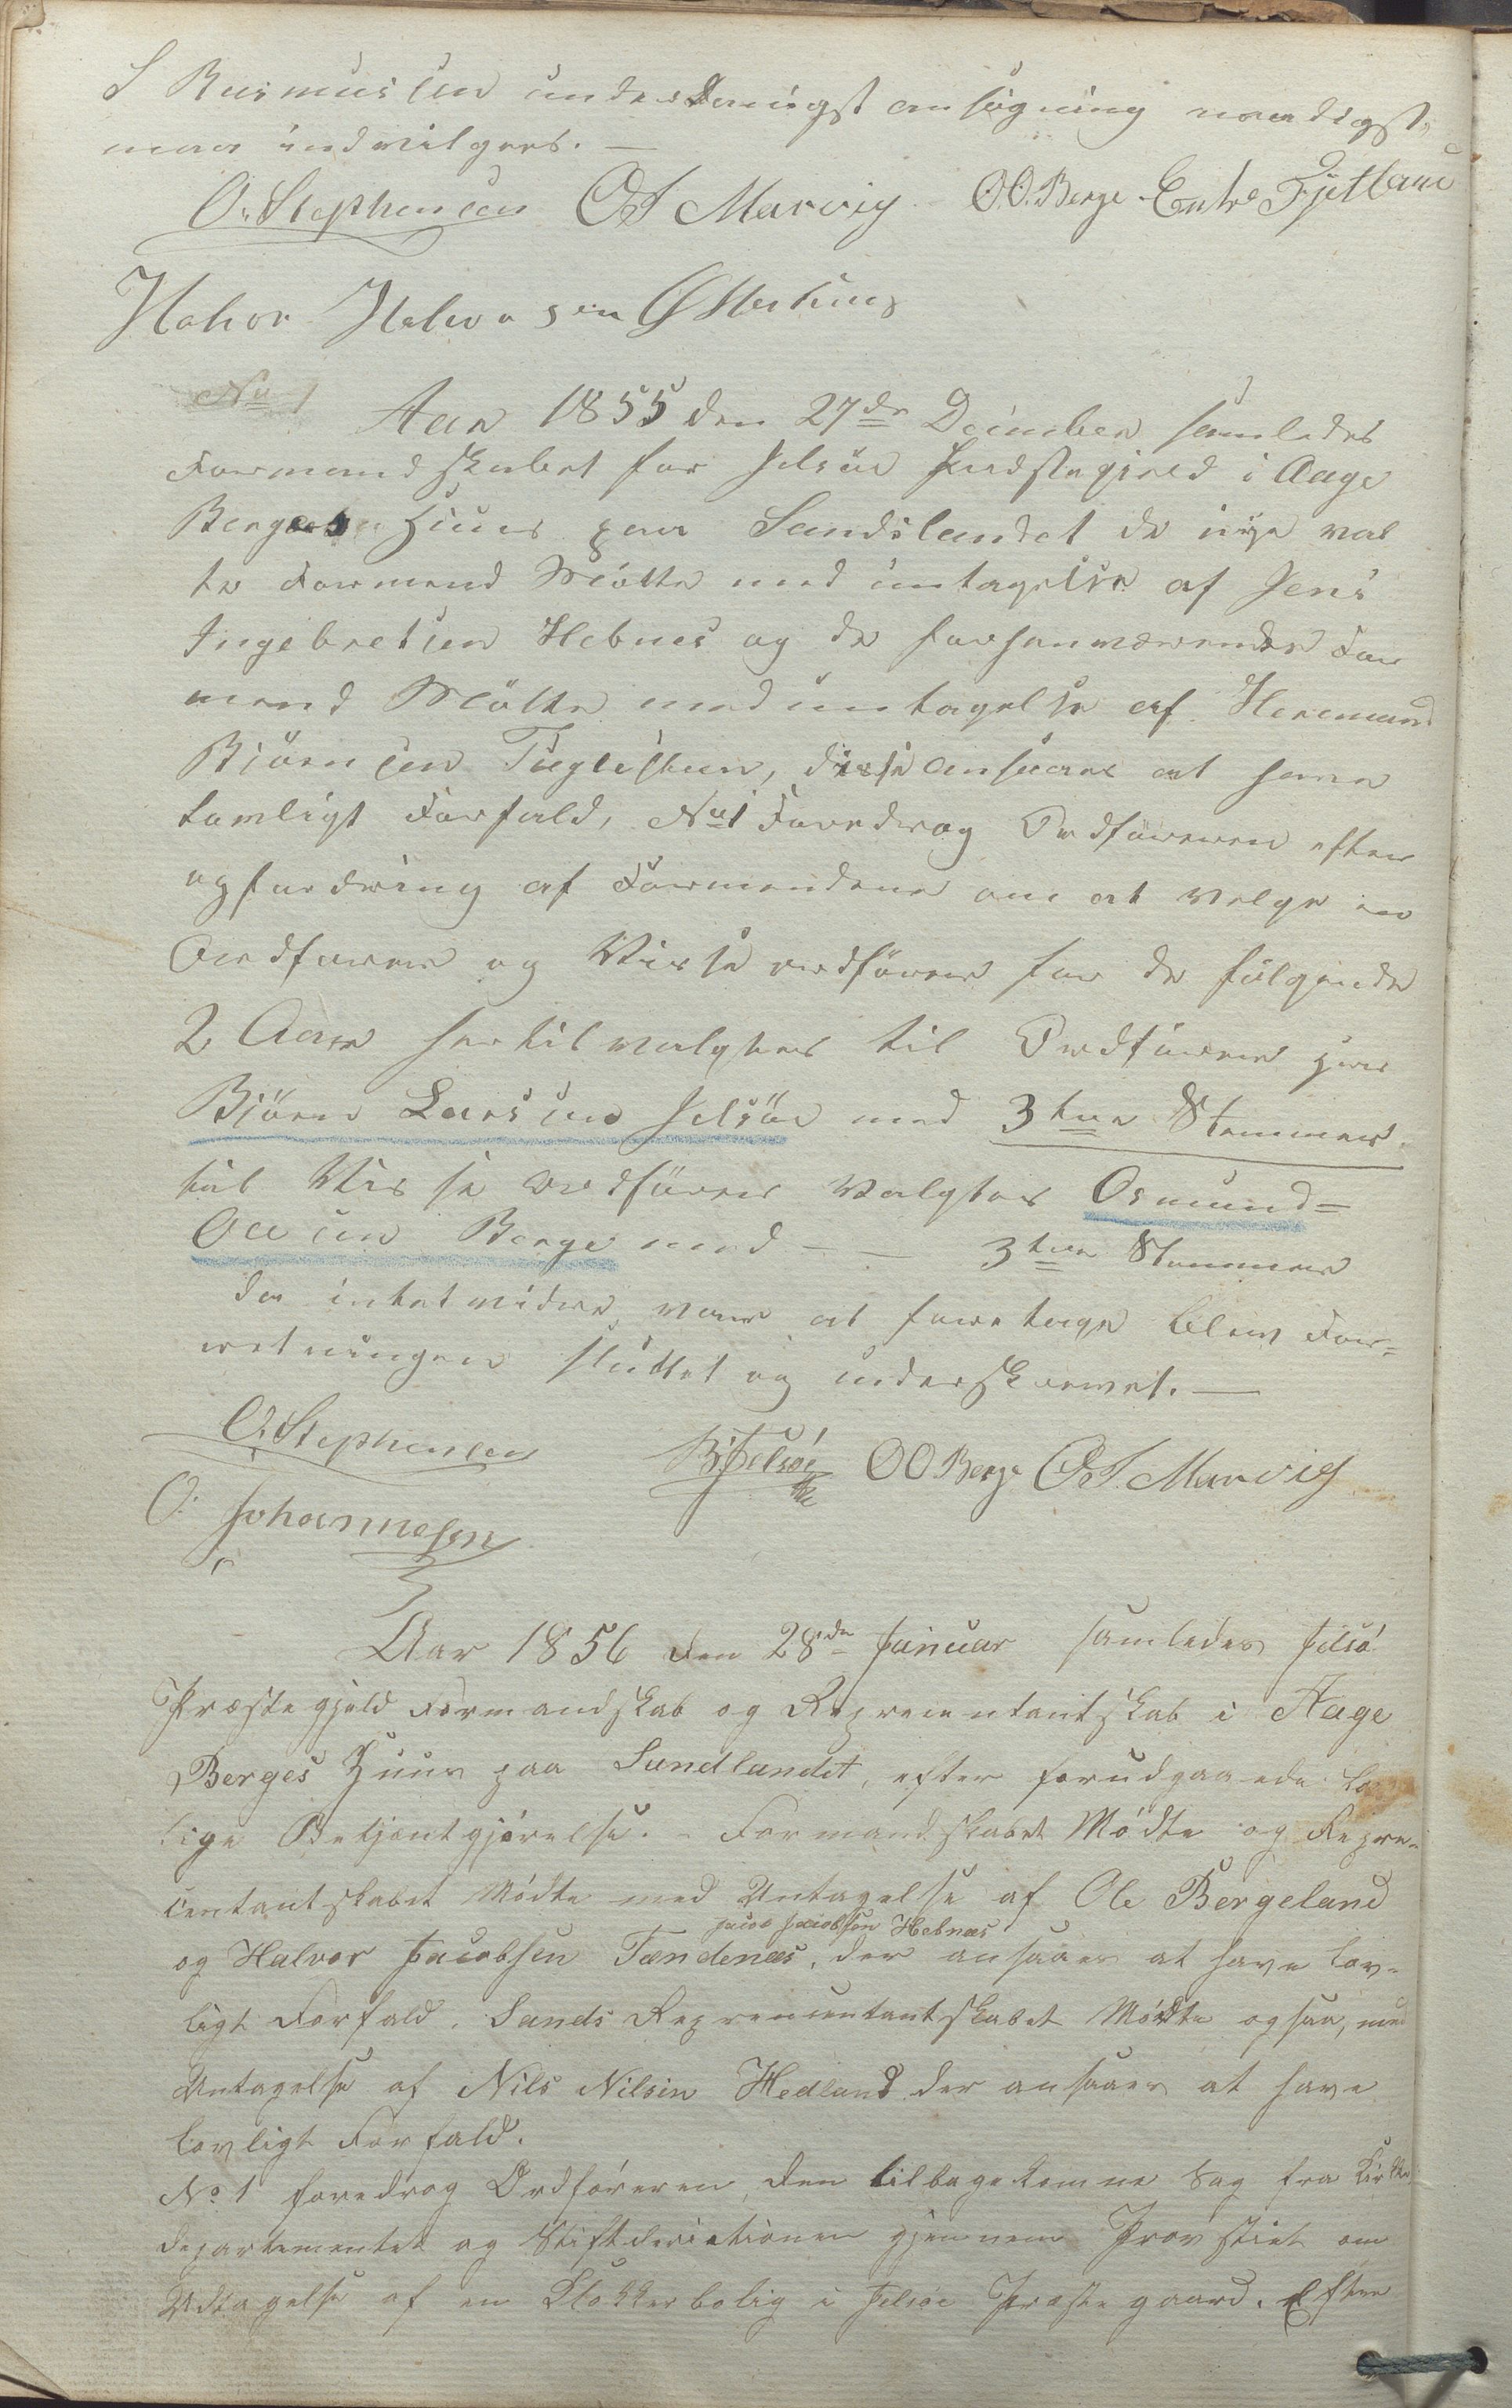 S Rasmussen underdanigst ansögning naadigst
maa indvilges. —
O. Stephensen OT Marvig. O.O. Berge Endre Fjetland
Halvor Halvorsen
No 1 Aar 1855 den 27de December samledes
Formandskabet for Jelsöe Præstegjeld i Aage
Berges Huus paa Sandslandet de nye val
te Formend Mötte med untagelse af Jens
Ingebretsen Hebnes og de forhenværende For
mend Mötte med untagelse af Heremand
Björnsen, disse ansaaes at have
lovligt Forfald, No 1 Foredrog Ordföreren efter
opfordring af Formendene om at velge en
Ordförer og Visse ordförer for de fölgende
2 Aar hertil valgtes til Ordförer
Björn Larsen Jelsöe med 3tre Stemmer.
til Visse ordförer valgtes Osmund=
Olsen Berge med — — 3tre Stemmer
da intet videre var at foretage blev For=
retningen sluttet og underskrevet. —
O. Stephensen B. Jelsöe OO Berge OT. Marvig
O. Johannesen
Aar 1856 den 28de Januar samledes Jelsö
Præstegjeld Formandskab og Reprecentantskab i Aage
Berges Huus paa Sandlandet, efter forudgaaede lov
lige Bekjentgjörelse. – Formandskabet Mödte og Repre-
centantskabet Mödte med Untagelse af Ole Bergeland
Jacob Jacobsen Hebnæs
og Halvor Jacobsen Tændenæs, der ansaaes at have lov-
ligt Forfald. Sands Reprecentantskabet Mödte ogsaa, med
Untagelse af Nils Nilsen Hedland der ansaaes at have
lovligt Forfald.
No 1 foredrog Ordföreren, den tilbagekomne Sag fra Kirke
departementet og Stiftdericktionen gjennem Provstiet om
Udtagelse af en Klokkerbolig i Jelsöe Præstegaard. Efter